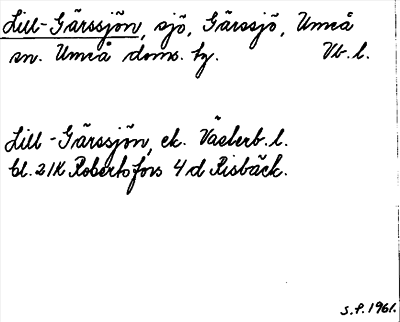 Lill-Gärssjön, sjö, Gärssjö, Umeå
sn. Umeå doms. hg. Vb. l.
Lill-Gärssjön, ek. Västerb. l.
bl. 21K Robertsfors 4 d Risbäck.
S.P. 1961.